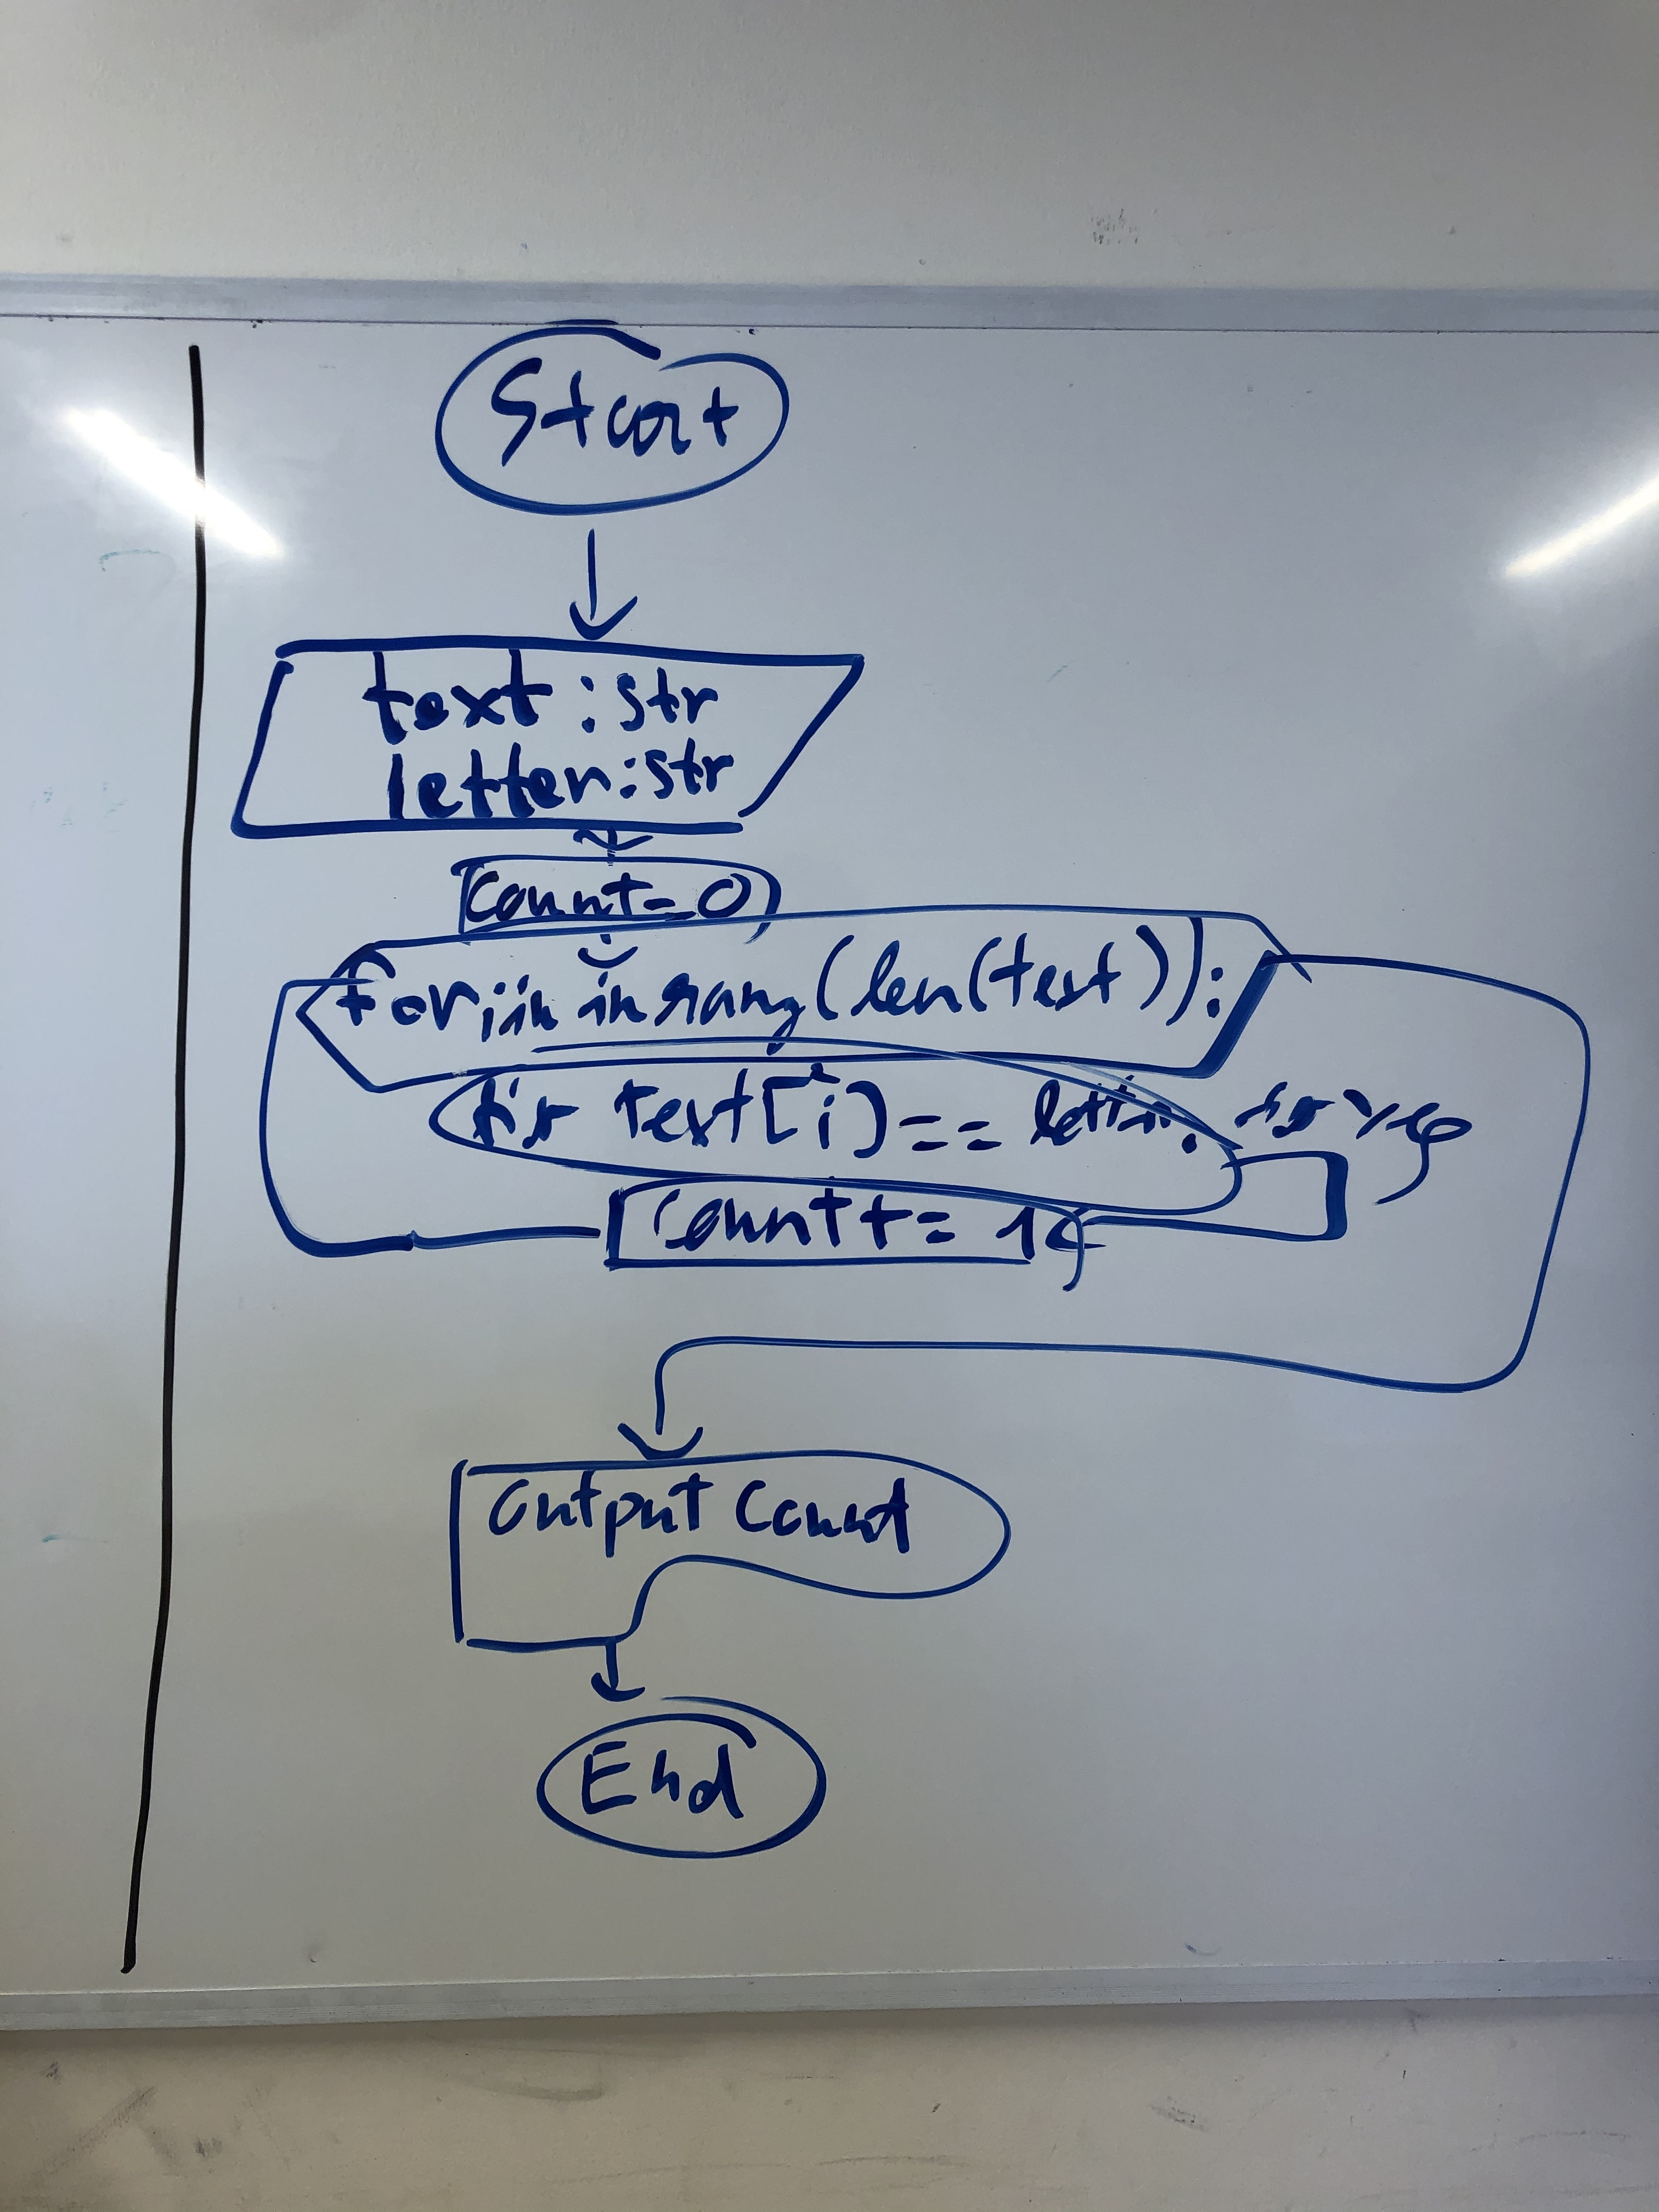 Start
text : str
letter : str
Count = 0
for i in in rang (len(text)):
text[i] == letter:
Count += 1
Output Count
End